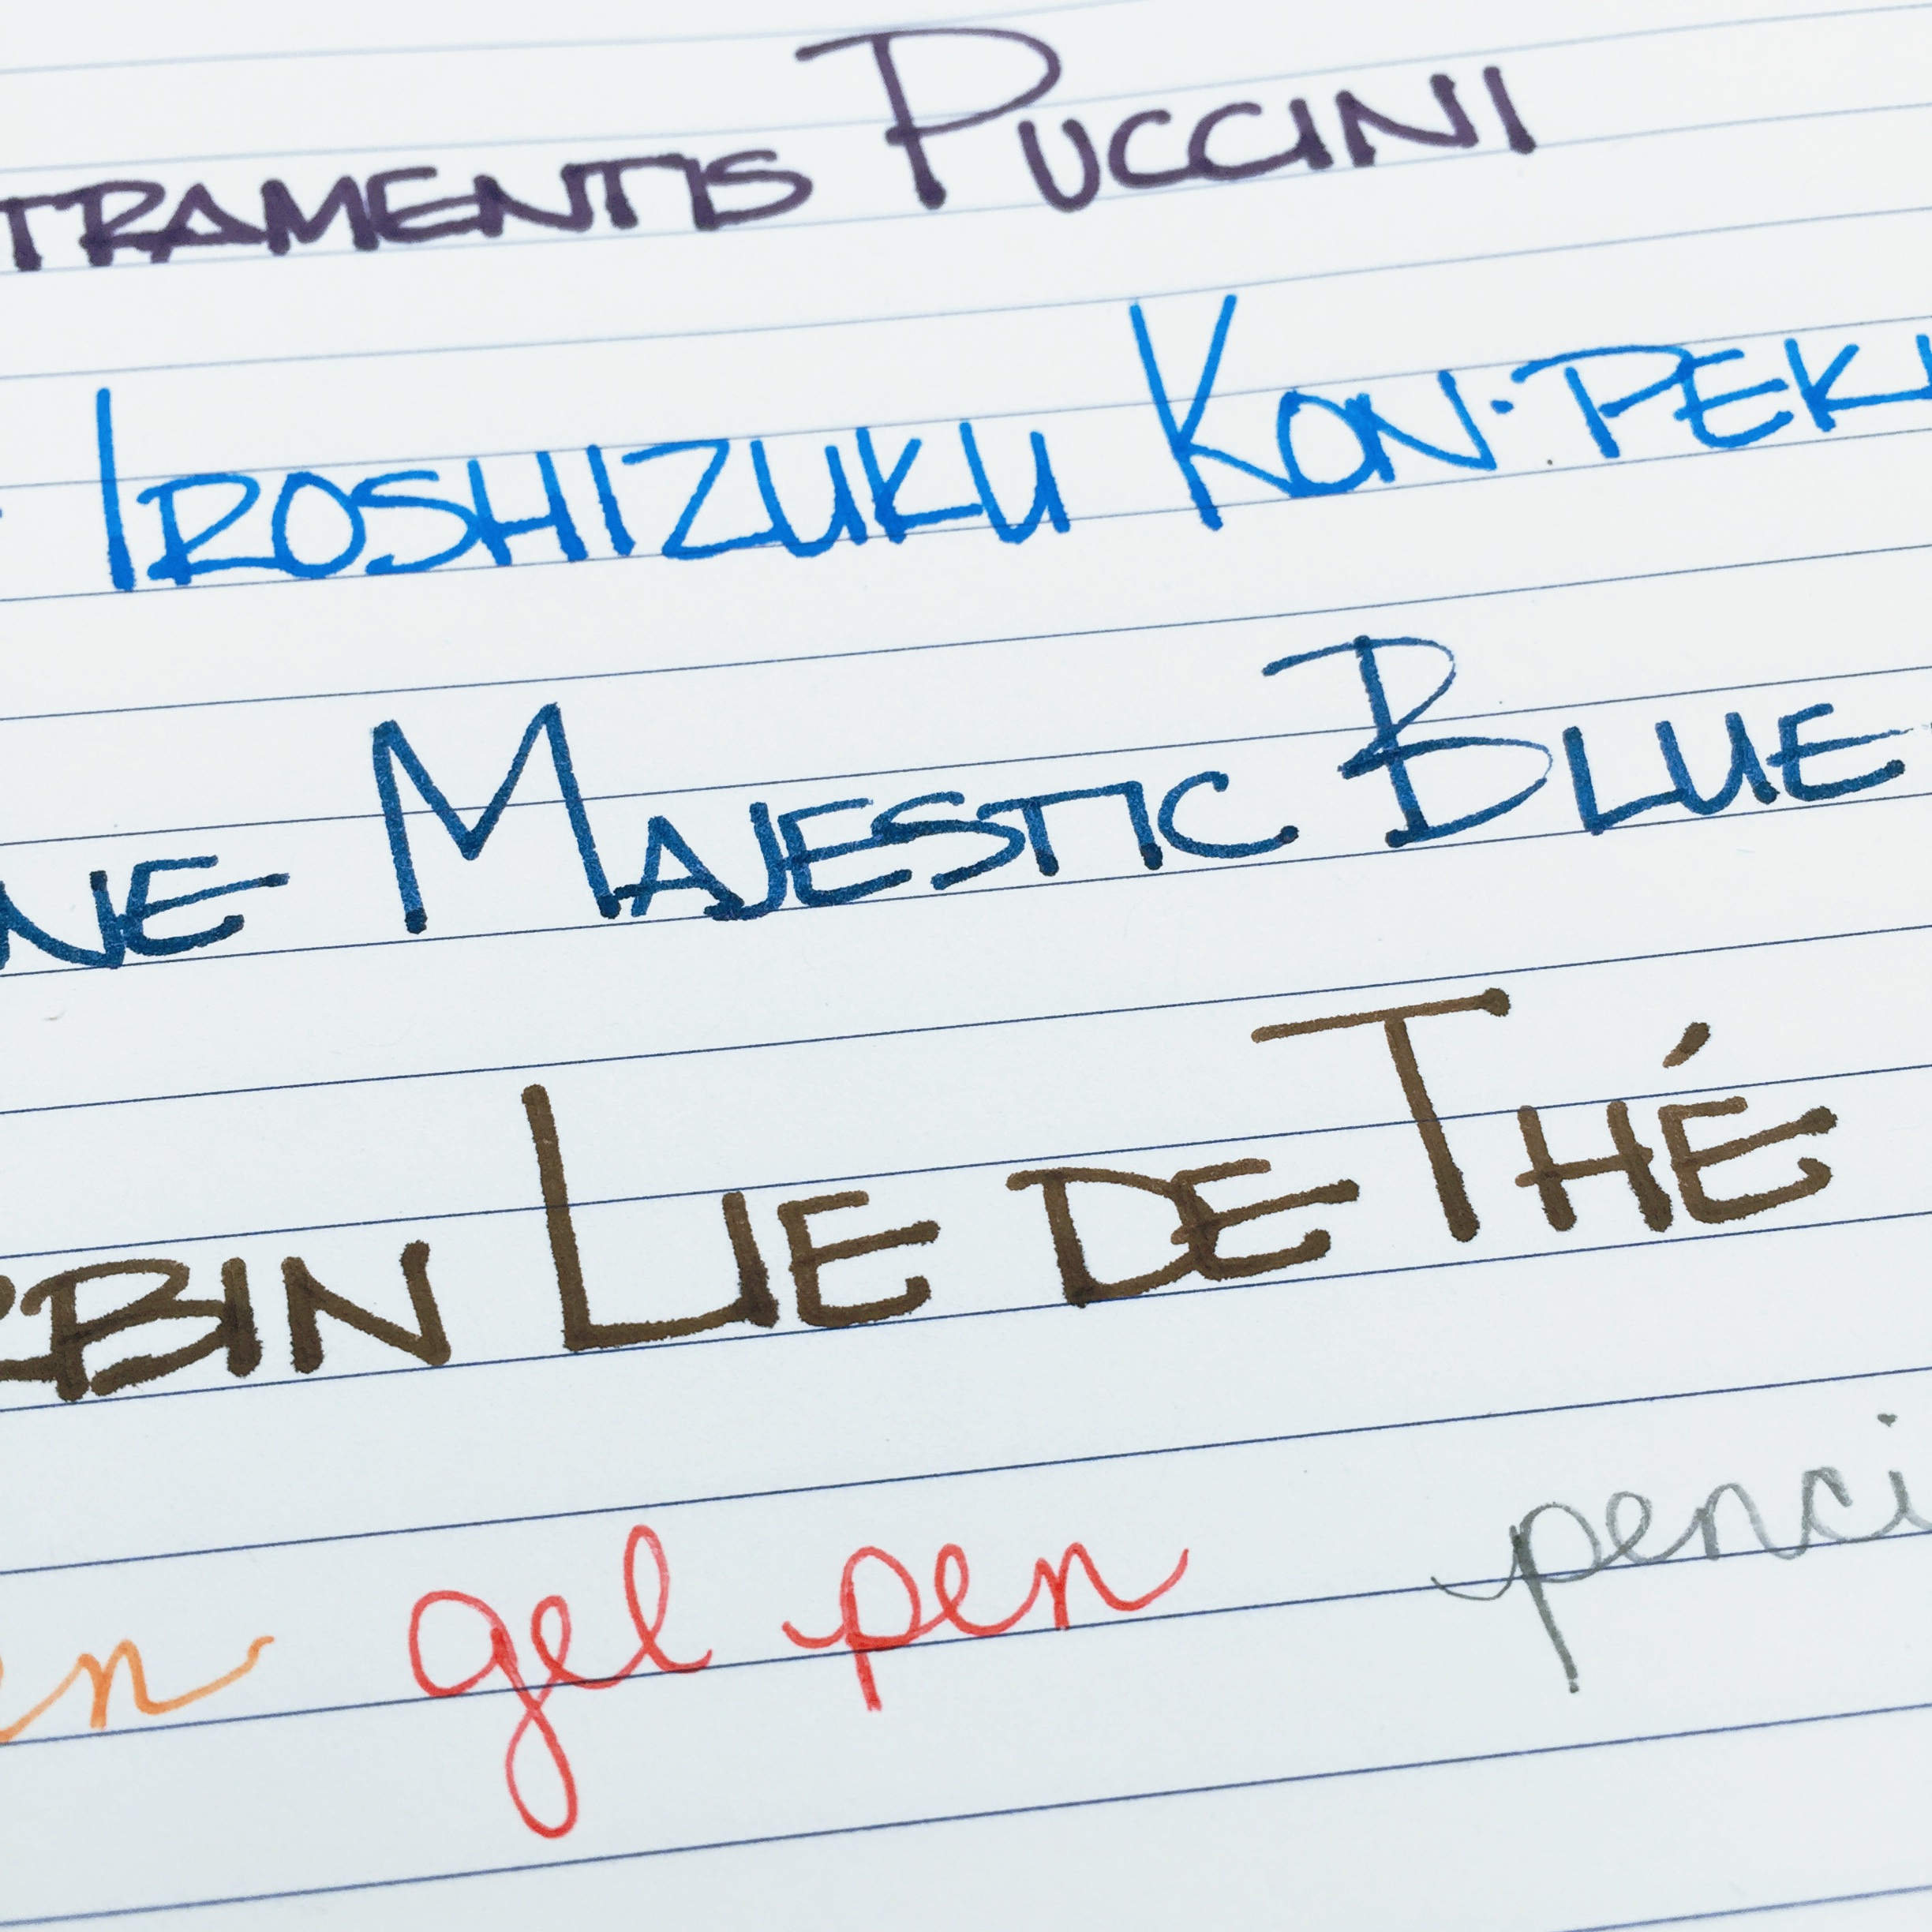 TRAMENTIS PUCCINI
IROSHIZUKU KON-PEK
NE MAJESTIC BLUE
RBIN LIE DE THÉ
en gel pen penci